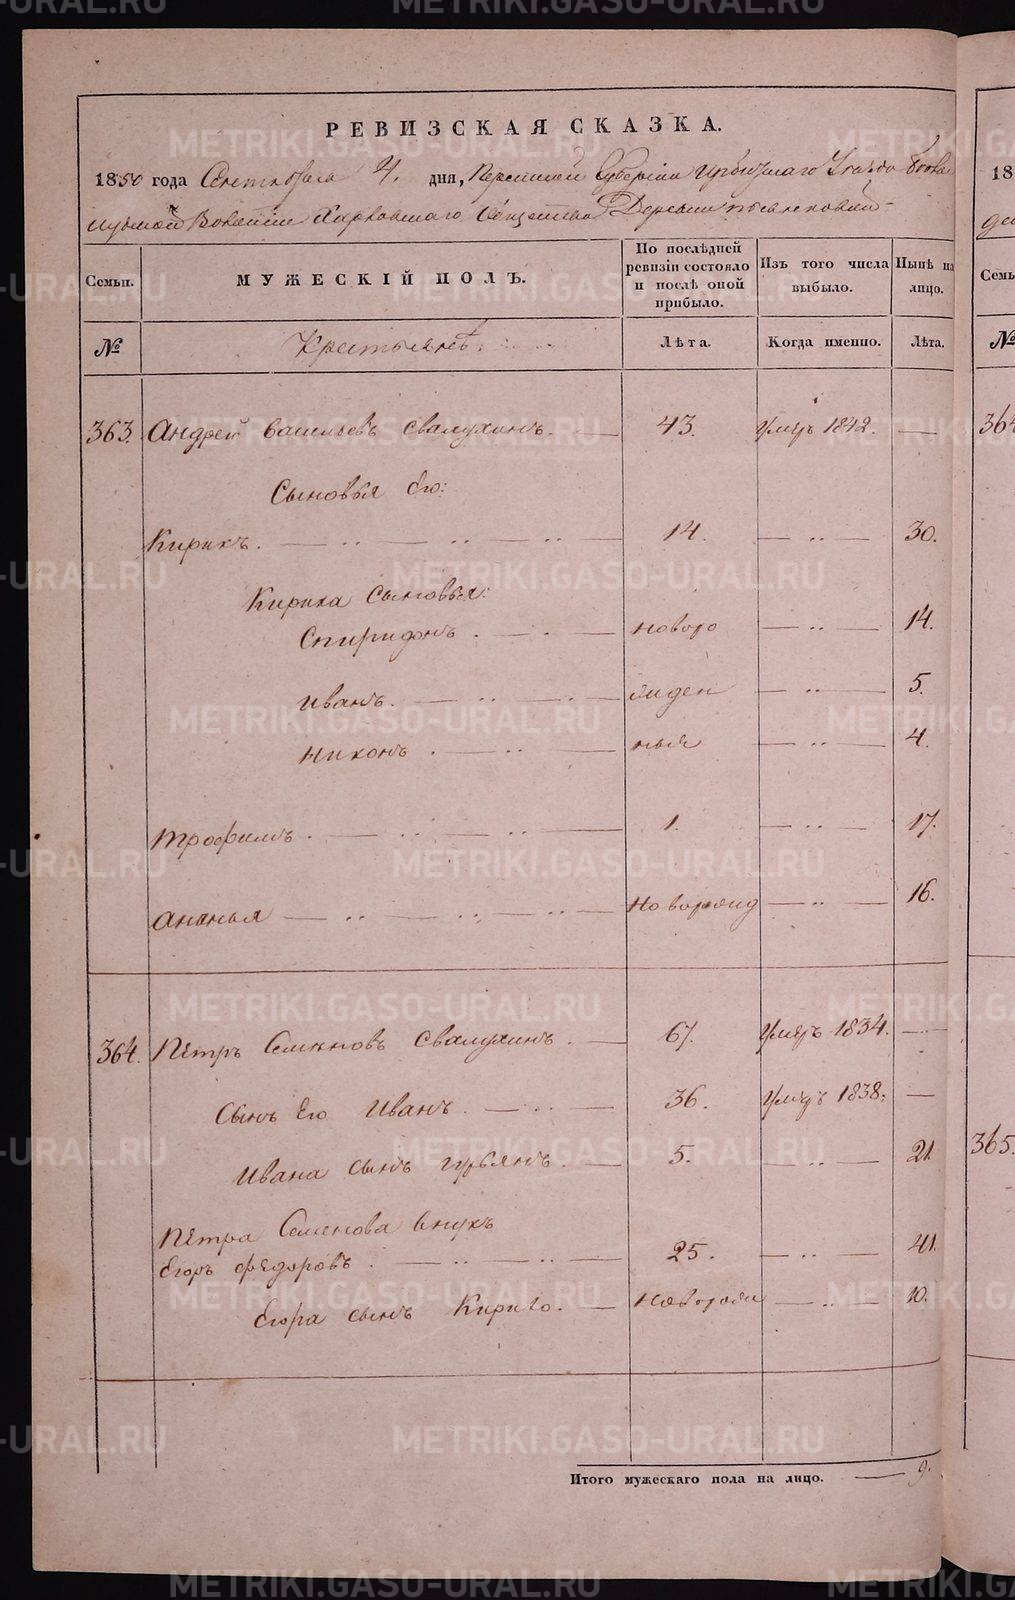 РЕВИЗСКАЯ СКАЗКА.
1850 года Сентября 4. дня, Пермской Губернии Ирбитскаго Уезда
Волости Харловшаго Общества Деревни
Семьи. МУЖЕСКІЙ ПОЛЪ. По послѣдней ревизіи состояло и послѣ оной прибыло. Изъ того числа выбыло. Нынѣ на лицо.
№ Крестьянѣ: Лѣта. Когда именно. Лѣта.
363. Андрей Васильевъ Свалухинъ. 43. Умеръ 1842. —
Сыновья Его:
Кирикъ. 14. — 30.
Кирика Сыновья:
Спиридонъ. новоро — 14.
Иванъ. жден — 5.
Никонъ. ныя — 4.
Трофимъ. 1. — 17.
Ананья —Новорожд — 16.
364. Петръ Семеновъ Свалухинъ. 67. Умеръ 1834. —
Сынъ Его Иванъ. 36. Умеръ 1838. —
Ивана сынъ Гурьянъ. 5. — 21.
Петра Семенова внукъ
Егоръ Федоровъ. 25. — 41.
Егора сынъ Кирило. Новорожд — 10.
Итого мужескаго пола на лицо. — 9.
18
Семь
№
364
365.
METRIKI.GASO-URAL.RU